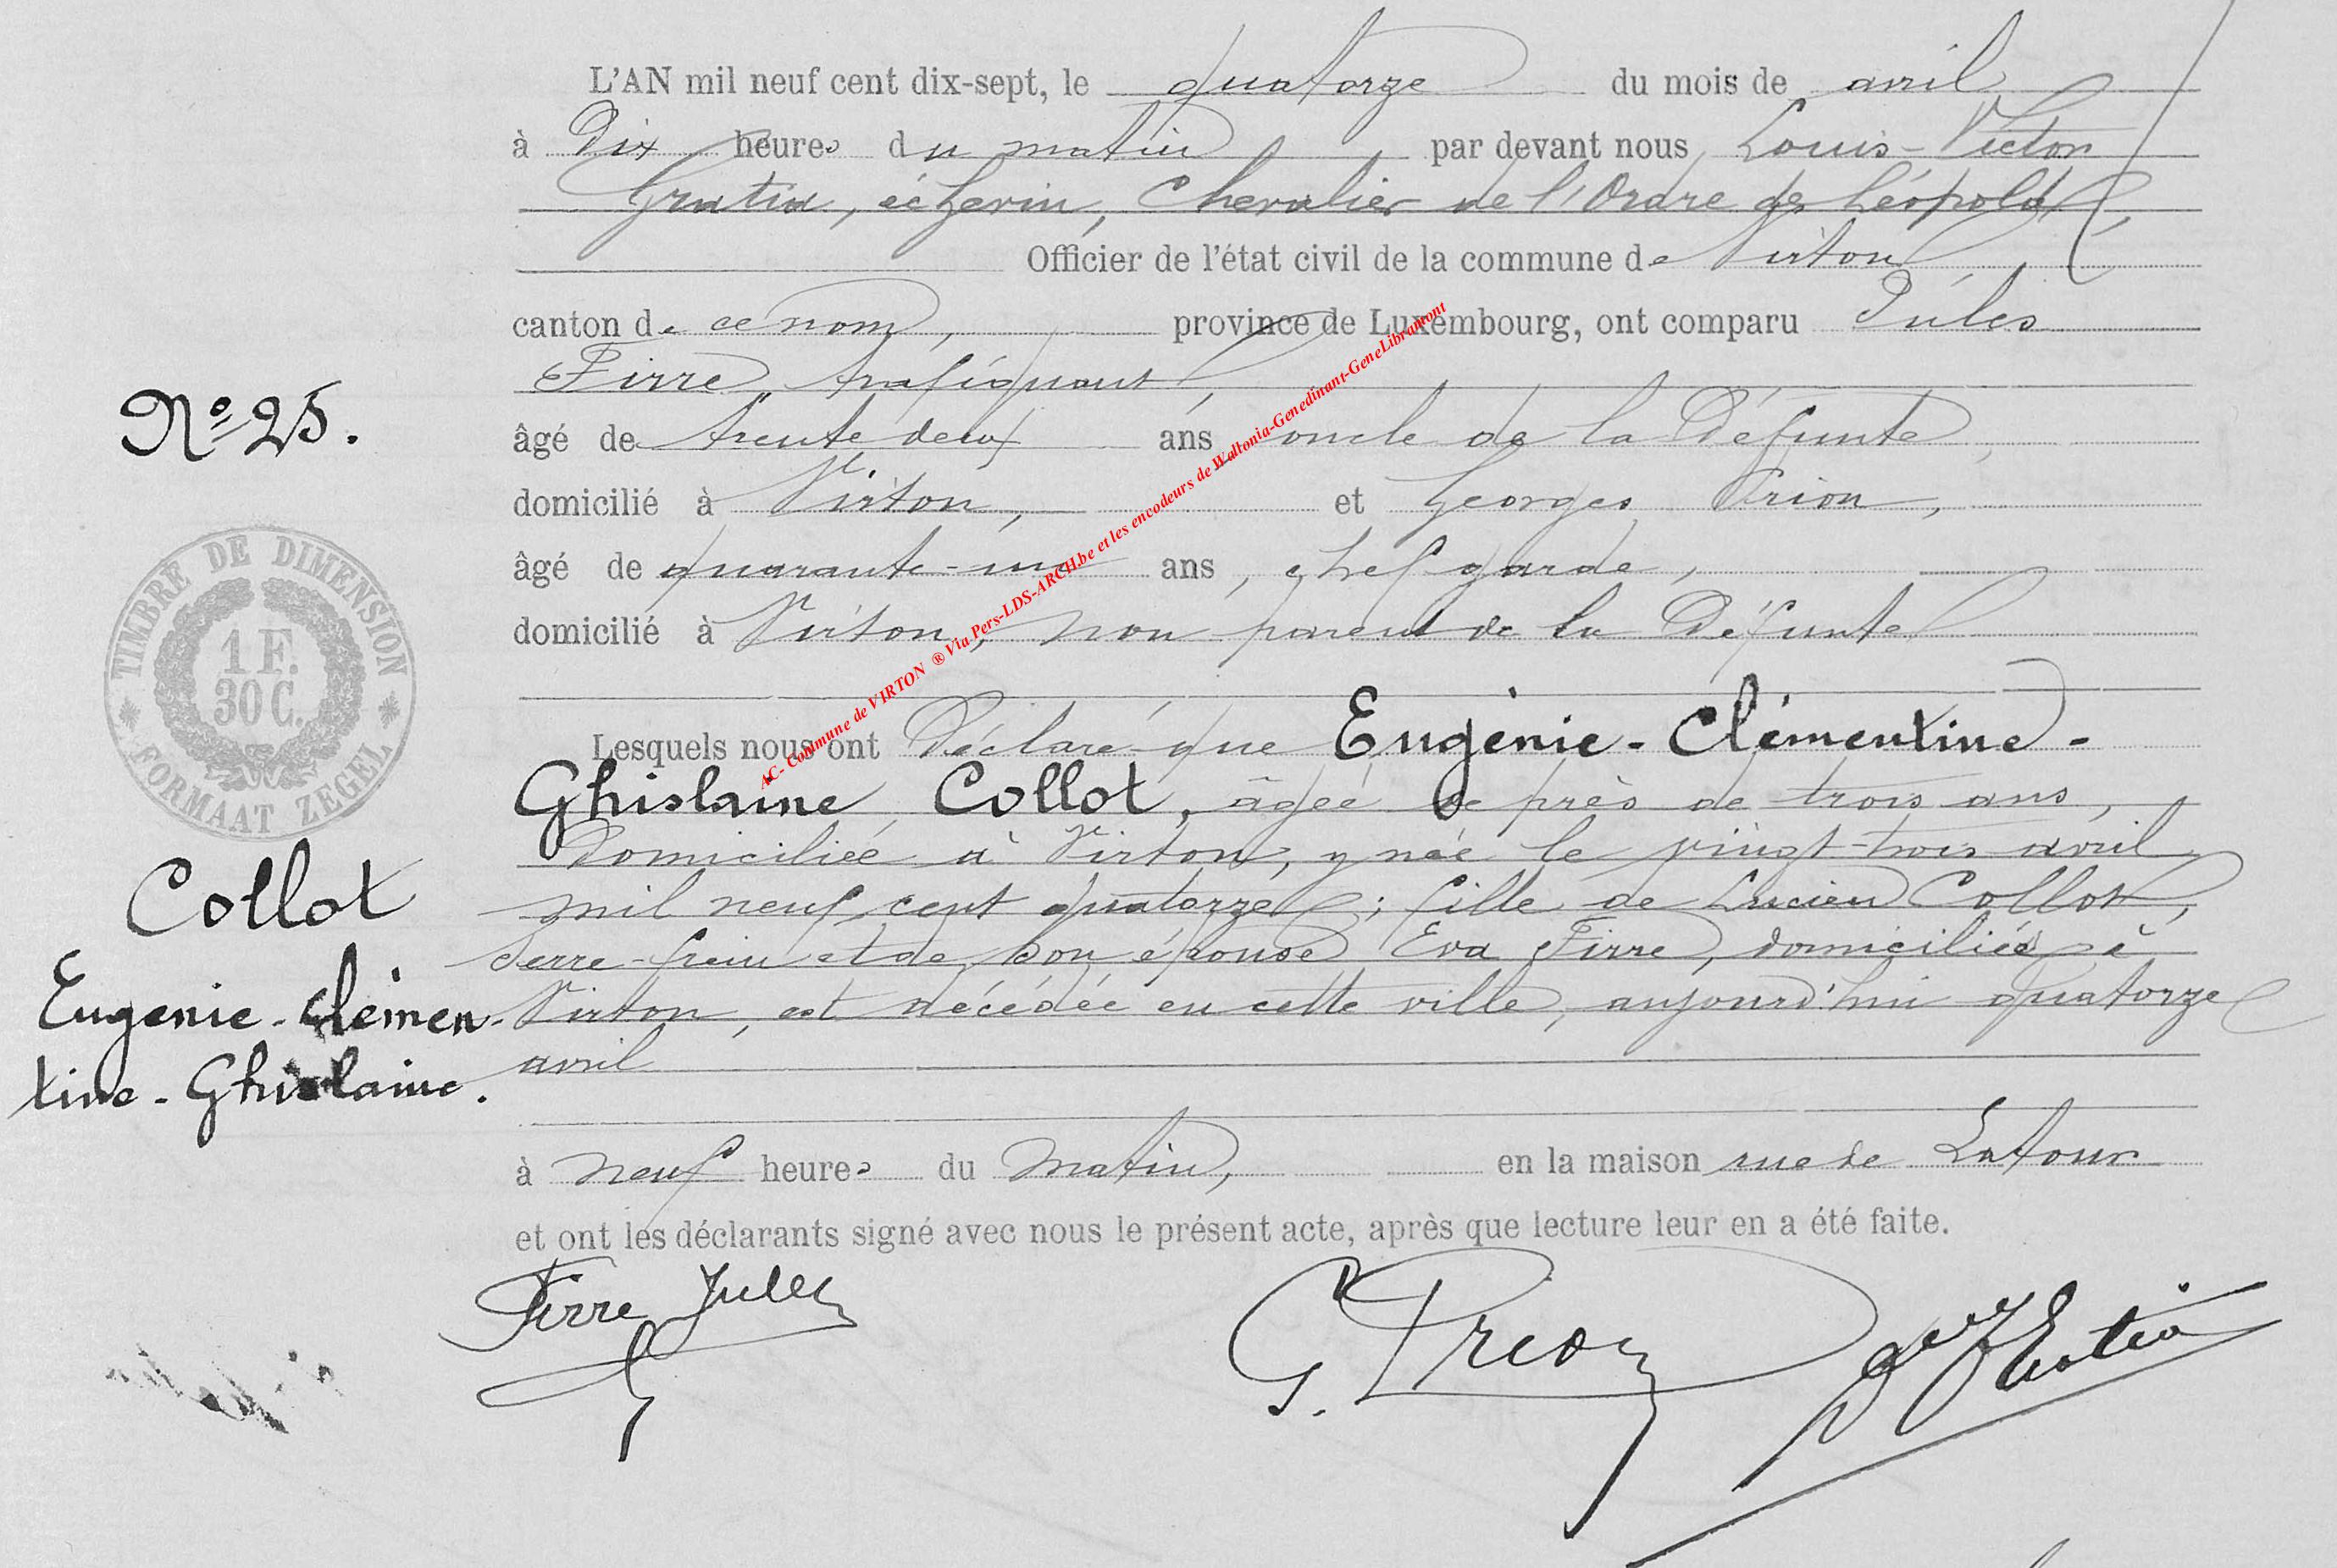 L'AN mil neuf cent dix-sept, le quatorze du mois de avril
à Dix heures du matin par devant nous Louis-Victor
échevin, Chevalier de l'Ordre de Léopold,
Officier de l'état civil de la commune de Virton
canton de ce nom, province de Luxembourg, ont comparu Jules
Firre, trafiquant,
âgé de trente deux ans, oncle de la Défunte,
domicilié à Virton, et Georges Prion,
âgé de quarante-un ans, chef garde,
domicilié à Virton, non parent de la Défunte
Lesquels nous ont Déclaré que Eugénie-Clémentine-
Ghislaine Collot, âgée de près de trois ans,
Domiciliée à Virton, y née le vingt-trois avril
mil neuf cent quatorze; fille de Lucien Collot,
Serre-frein et de son épouse Eva Firre, domiciliés à
Virton, est décédée en cette ville, aujourd'hui quatorze
avril
à neuf heures du matin, en la maison rue de Latour
et ont les déclarants signé avec nous le présent acte, après que lecture leur en a été faite.
Firre Jules
G. Prion
No 25.
TIMBRE DE DIMENSION
1 F.
30 C.
FORMAAT ZEGEL
Collot
Eugenie-Clémen-
tine-Ghislaine.
AC- Commune de VIRTON ® Via Pers-LDS-ARCH.be et les encodeurs de Waltonia-Genedinant-GeneLibramont